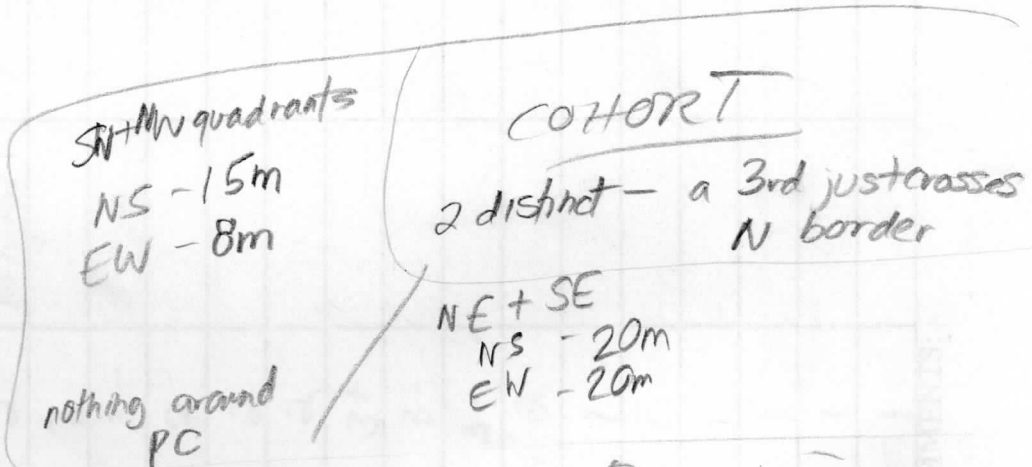 SW+NW quadrants
NS - 15m
EW - 8m
nothing around
PC
COHORT
2 distinct - a 3rd just crosses
N border
NE + SE
NS - 20m
EW - 20m
MMENTS: